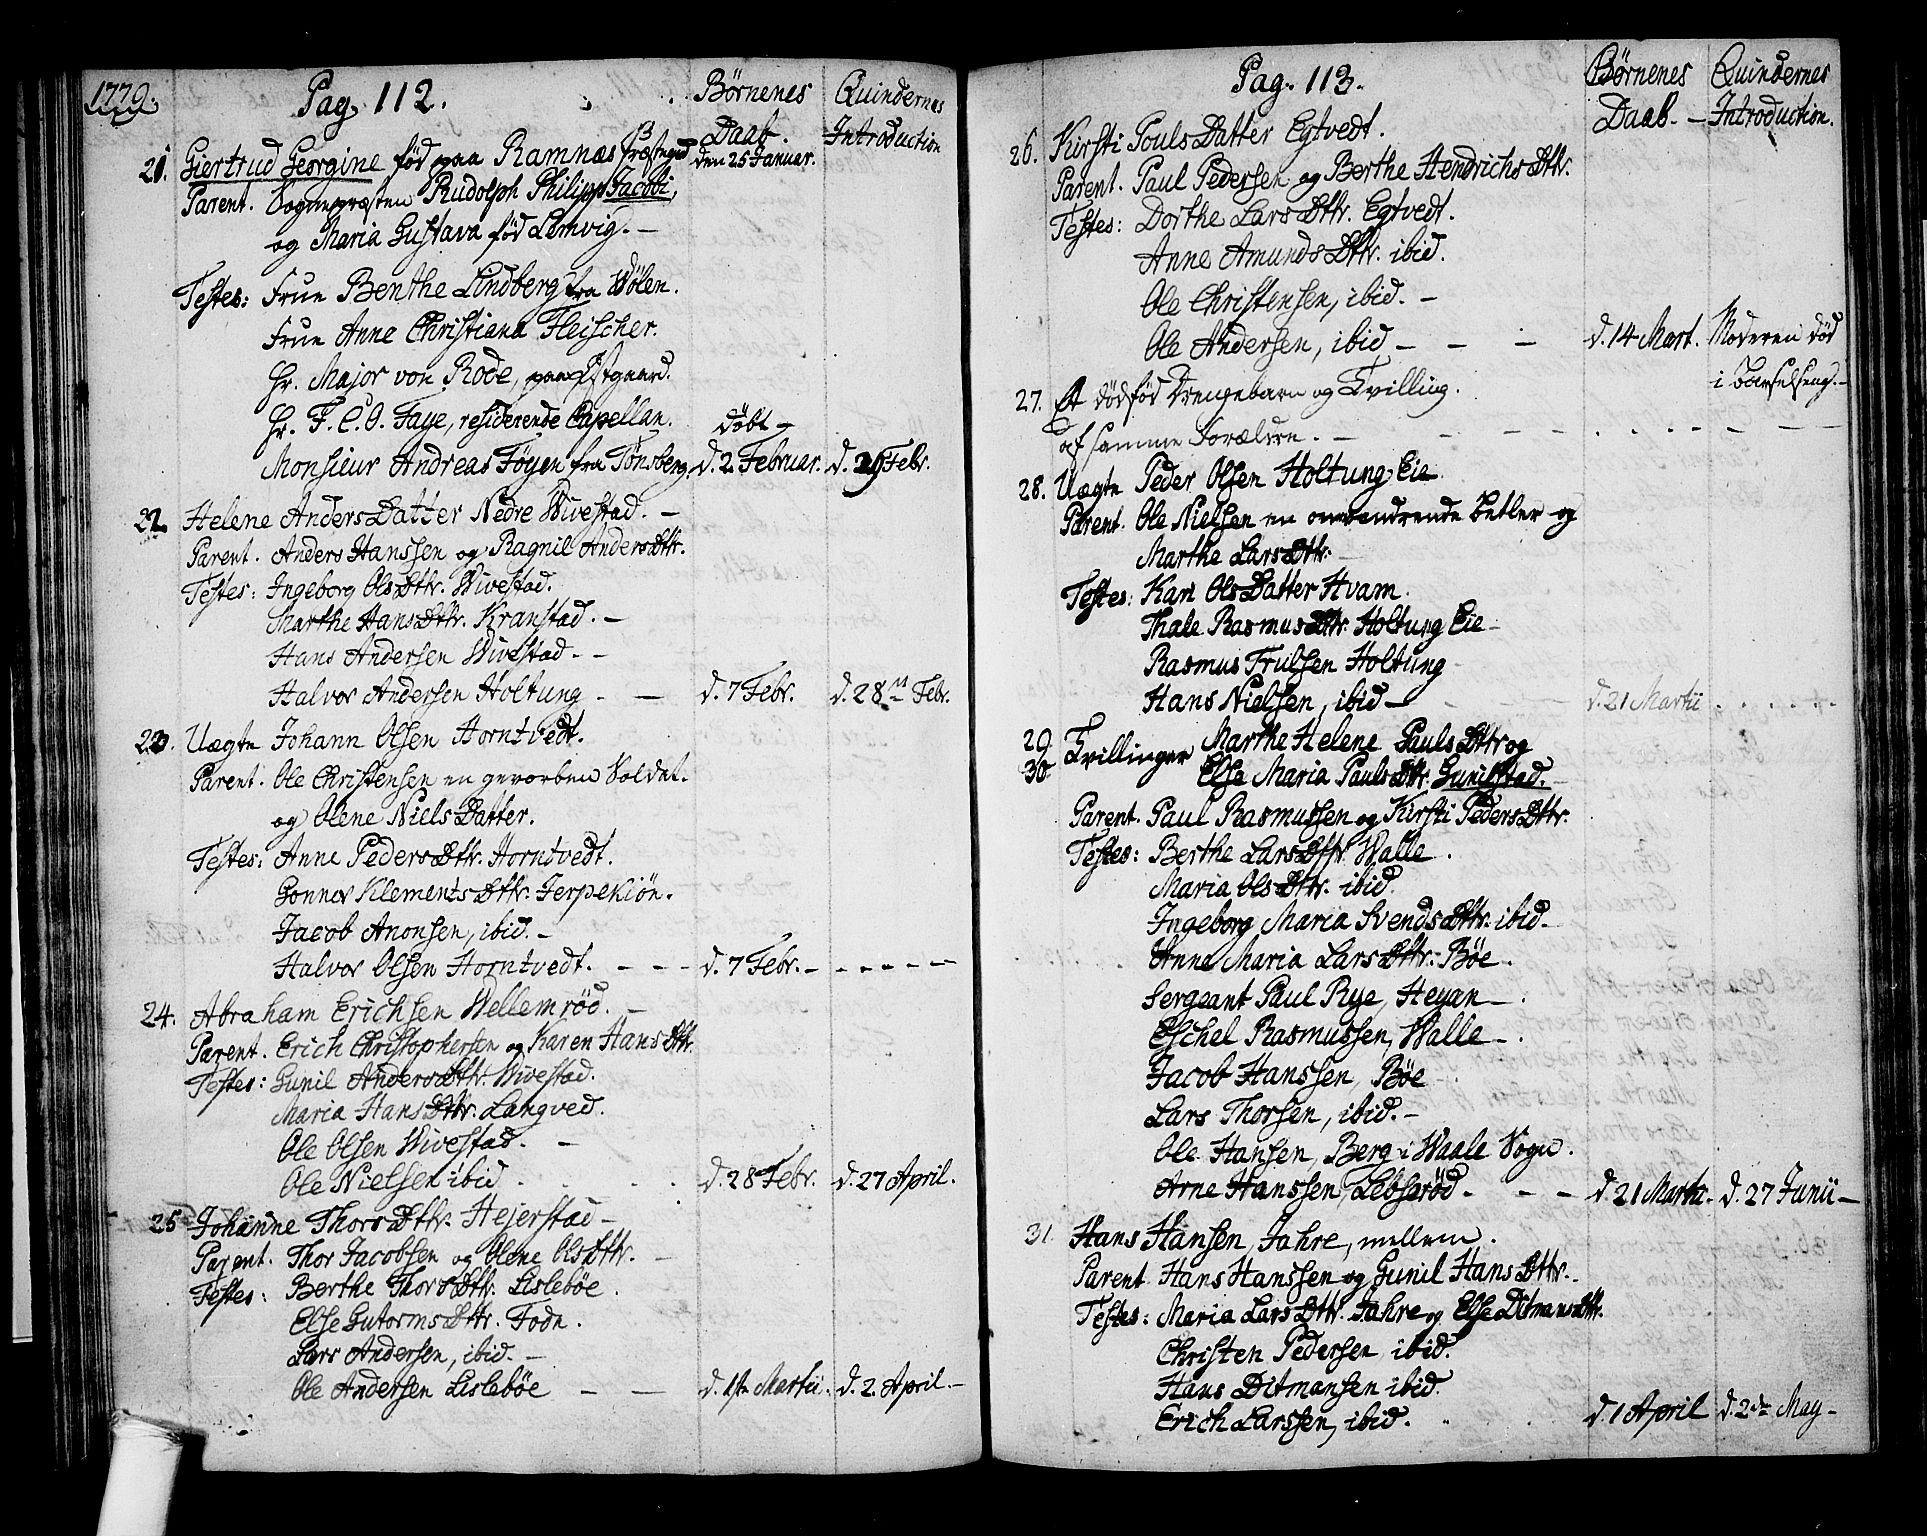 1779.
Pag. 112.
Børnenes Daab.
Quindernes Introduction
21. Giertrud Georgine fød paa Ramnæs Præstegd den 25 Januar.
Parent. Sognepræsten Rudolph Philipp Jacobi,
og Maria Gustava fød Lemvig. –
Testes: Frue Benthe Lindberg fra Wølen.
Frue Anne Christiana Fleischer.
Hr. Major von Rode, paa Østgaard.
Hr. F. C. O. Faye, residerende Capellan. døbt –
Monsieur Andreas Føyen fra Tønsberg. d. 2 Februar. d. 26 Febr.
22. Helene AndersDatter Nedre Wivestad. –
Parent. Anders Hanssen og Ragnil AndersDttr.
Testes: Ingeborg OlsDttr. Wivestad.
Marthe HansDttr. Kranstad. –
Hans Andersen Wivestad – –
Halvor Andersen Holtung – – d. 7 Febr. d. 28 Febr.
23. Uægte Johann Olsen Horntvedt.
Parent. Ole Christensen en gevorben Soldat.
og Olene NielsDatter.
Testes: Anne PedersDttr. Horntvedt.
Gonner KlementsDttr. Jerpekiøn.
Jacob Anonsen, ibid. –
Halvor Olsen Horntvedt. – – – d. 7 Febr. – – – – – –
24. Abraham Erichsen Wellemrød. –
Parent. Erich Christophersen og Karen HansDttr.
Testes: Gunil AndersDttr. Wivestad.
Maria HansDttr. Langved.
Ole Olsen Wivestad. –
Ole Nielsen ibid . . . . d. 28 Febr. d. 27 April.
25 Johanne ThorsDttr. Hejerstad –
Parent. Thor Jacobsen og Olene OlsDttr. –
Testes: Berthe ThorsDttr. Lislebøe.
Else GutormsDttr. Fodn.
Lars Andersen, ibid. –
Ole Andersen Lislebøe – – d. 1ste Martii. d. 2. April. –
Pag. 113.
Børnenes Daab. –
Quindernes Introduction.
26. Kirsti PoulsDatter Egtvedt.
Parent. Paul Pedersen og Berthe HendrichsDttr.
Testes: Dorthe LarsDttr. Egtvedt.
Anne AmundsDttr. ibid.
Ole Christensen, ibid. –
Ole Andersen, ibid – – – d. 14 Mart. Moderen død
i Barselseng. –
27. Et dødfød Drengebarn og Tvilling.
af samme Forældre. – – – – – –
28. Uægte Peder Olsen Holtung Eie
Parent. Ole Nielsen en omvandrende Betler og
Marthe LarsDttr.
Testes: Kari OlsDatter Hvam.
Thale RasmusDttr. Holtung Eie –
Rasmus Trulsen Holtung
Hans Nielsen, ibid – – – – d. 21 Martii . . . . . .
29 30 Tvillinger Marthe Helene PaulsDttr og
Else Maria PaulsDttr. Gunilstad.
Parent. Paul Rasmussen og Kirsti PedersDttr.
Testes: Berthe LarsDttr. Walle.
Maria OlsDttr. ibid.
Ingeborg Maria SvendsDttr. ibid –
Anne Maria LarsDttr. Bøe.
Sergeant Paul Rye, Heyan – .
Eschel Rasmussen, Walle – .
Jacob Hanssen, Bøe
Lars Thorsen, ibid. –
Ole Hansen, Berg i Waale Sogn.
Arne Hanssen, Lebserød – – – d. 21 Martii. d. 27 Junii –
31. Hans Hansen, Jahre, mellem.
Parent. Hans Hanssen og Gunil HansDttr.
Testes: Maria LarsDttr. Jahre og Else DitmansDttr.
Christen Pedersen, ibid.
Hans Ditmansen ibid.
Erich Larssen, ibid. d. 1 April d. 2den May –